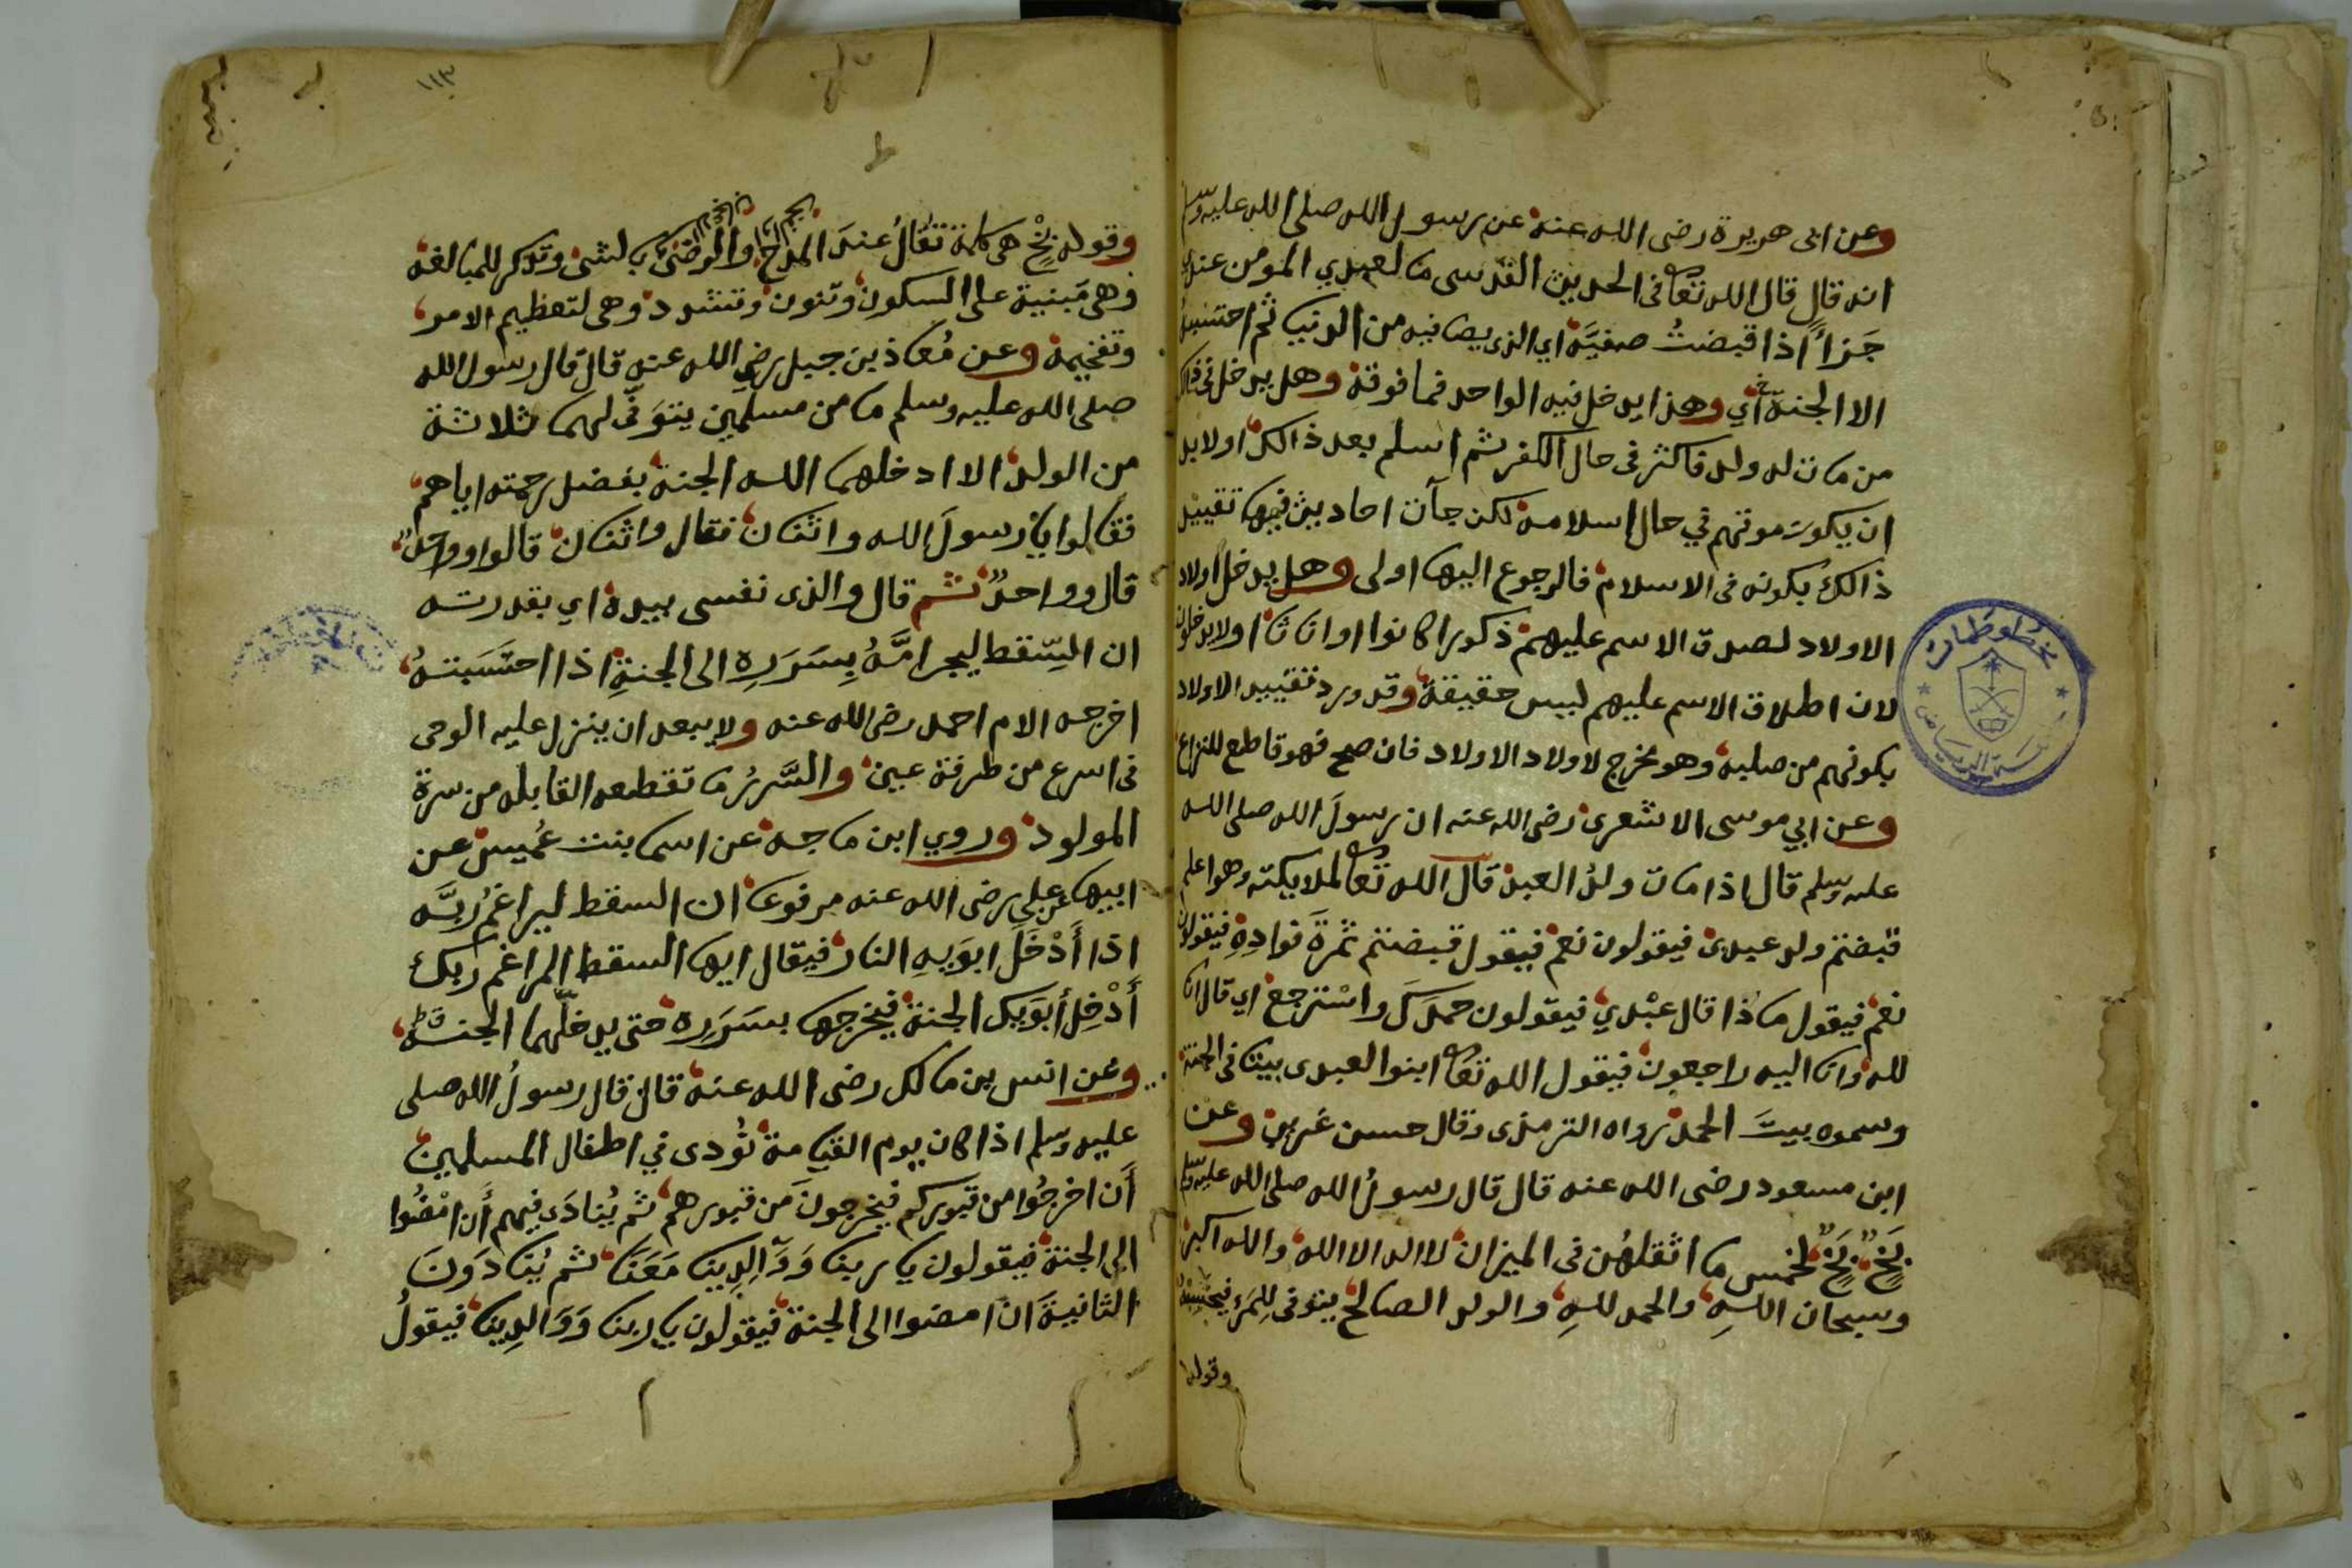 وعن ابى هريرة رضى الله عنه عن رسول الله صلى الله عليه وسلم
انه قال قال الله تعا فى الحديث القدسى ما لعبدي المومن عندي
جَزاءً اذا قبضتُ صفيَّه اي الذى يصافيه من الدنيا ثم احتسبهُ
الا الجنة اي وهذا يدخل فيه الواحد فما فوقه وهل يدخل فى ذالك
من مات له ولد فاكثر فى حال الكفر ثم اسلم بعد ذالك اولا بد
ان يكون موتهم في حال اسلامه لكن جآت احاديث فيها تقييد
ذالك بكونه فى الاسلام فالرجوع اليها اولى وهل يدخل اولاد
الاولاد لصدق الاسم عليهم ذكورا كانوا او اناثا اولا يدخلون
لان اطلاق الاسم عليهم ليس حقيقة وقد ورد تقييد الاولاد
بكونهم من صلبه وهو مخرج لاولاد الاولاد فان صح فهو قاطع للنزاع
وعن ابي موسى الاشعرى رضى الله عنه ان رسولَ الله صلى الله
عليه وسلم قال اذا مات ولدُ العبد قال الله تعا لملايكته وهو اعلم
قبضتم ولد عبدى فيقولون نعم فيقول قبضتم ثمرةَ فوادِهِ فيقولون
نعم فيقول ماذا قال عبْدي فيقولون حمدَكَ واسْترجع اي قال انا
لله وانا اليه راجعون فيقول الله تعا ابنوا لعبدى بيتا فى الجنة
وسموه بيتَ الحمد رواه الترمذى وقال حسن غريب وعن
ابن مسعود رضى الله عنه قال قال رسولُ الله صلى الله عليه وسلم
بَخٍ بَخٍ لخمس ما اثقلهُن فى الميزان لا اله الا الله والله اكبر
وسبحان اللهِ والحمد للهِ والولد الصالح يتوفى لِلمَرءِ فيحتسِبُهُ
وقوله
١١٣
وقوله بَخٍْ هى كلمة تقالُ عندَ المدح والرضىَ بالشى وتكرر للمبالغه
وهى مَبنية على السكون وتنون وتشدد وهى لتعظيم الامر
وتفخيمه وعن مُعاذ بن جبل رضي الله عنه قال قال رسول الله
صلى الله عليه وسلم ما من مسلمين يتوَفَّى لهما ثلاثة
من الولد الا ادخلهما الله الجنة بفضل رحمته اياهم
فقالوا يا رسولَ الله واثنان فقال واثنان قالوا وواحدٌ
قال وواحدٌ ثم قال والذى نفسى بيده اي بقدرته
ان السِّقط ليجر امَّهُ بِسَرَرِهِ الى الجنةِ اذا احتَسَبتهُ
اخرجه الام احمد رضى الله عنه ولا يبعد ان ينزل عليه الوحى
فى اسرع من طرفة عين والسَّررُ ما تقطعه القابله من سرة
المولود وروي ابن ماجه عن اسما بنت عُميس عن
ابيها عن على رضى الله عنه مرفوعا ان السقط ليراغمُ ربَّه
اذا أَدْخَلَ ابوَيهِ النار فيقال ايها السقط المراغم ربك
أَدْخِل أبَوَيك الجنة فيخرجها بسَرَرِه حتى يدخلَّهما الجنة
وعن انس بن مالك رضى الله عنه قال قال رسولُ الله صلى
عليه وسلم اذا كان يوم القيامة نُودى في اطفال المسلمين
أَن اخرجُوا من قبوركم فيخرجونَ من قبورهم ثم يُنادَى فيهم أَن امْضُوا
الى الجنة فيقولون يا ربنا وَوَآلِدِينا مَعَنَا ثم يُنادَونَ
الثانيةَ ان امضوا الى الجنة فيقولون يا ربنا وَوَالدِينا فيقولُ